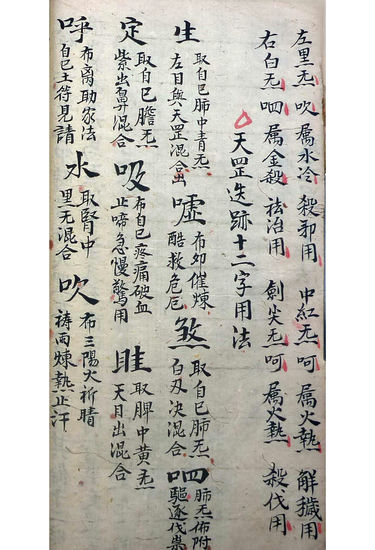 左里炁吹屬水冷 殺邪用 中紅炁呵屬火熱 解穢用
右白炁呬屬金殺 祛治用 劍尖炁呵屬火熱 殺伐用
天罡迭跡十二字用法
生 取自己肺中青炁
左目與天罡混合出
噓 布卯催煉
酷救危厄
煞 取自己肺炁
白刃決混合
呬 肺炁佈附
驅逐伐祟
定 取自己膽炁
紫出鼻混合
吸 布自己疼痛破血
止啼急慢驚用
睢 取脾中黃炁
天目出混合
呼 布离助家法
自己土符見請
水 取腎中
里炁混合
吹 布三陽火祈晴
祷雨煉熱止汗